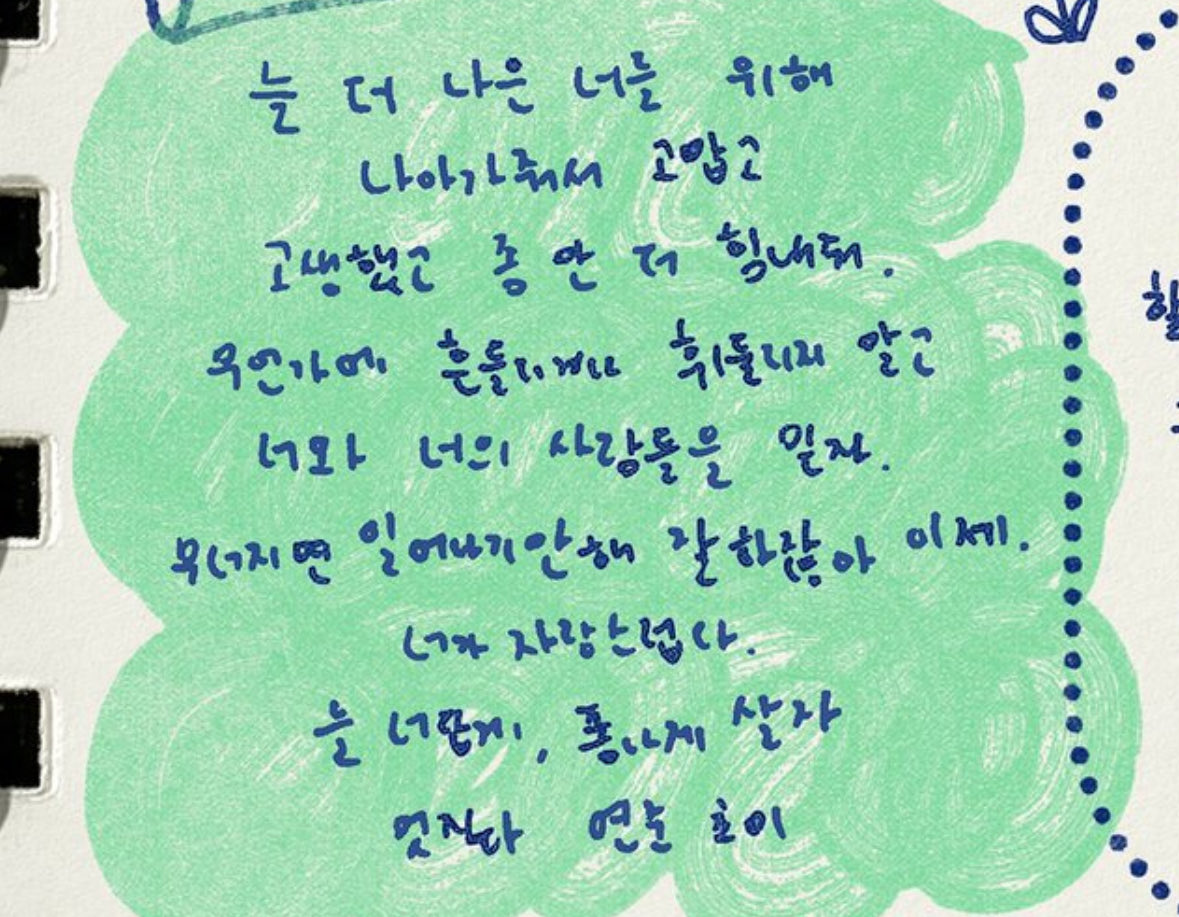 늘 더 나은 너를 위해
나아가줘서 고맙고
고생했고 좀 만 더 힘내줘.
무언가에 흔들리거나 휘둘리지 말고
너와 너의 사람들을 믿자.
무너지면 일어나기만해 잘하잖아 이제.
너가 자랑스럽다.
늘 너답게, 폼나게 살자
멋지다 연준